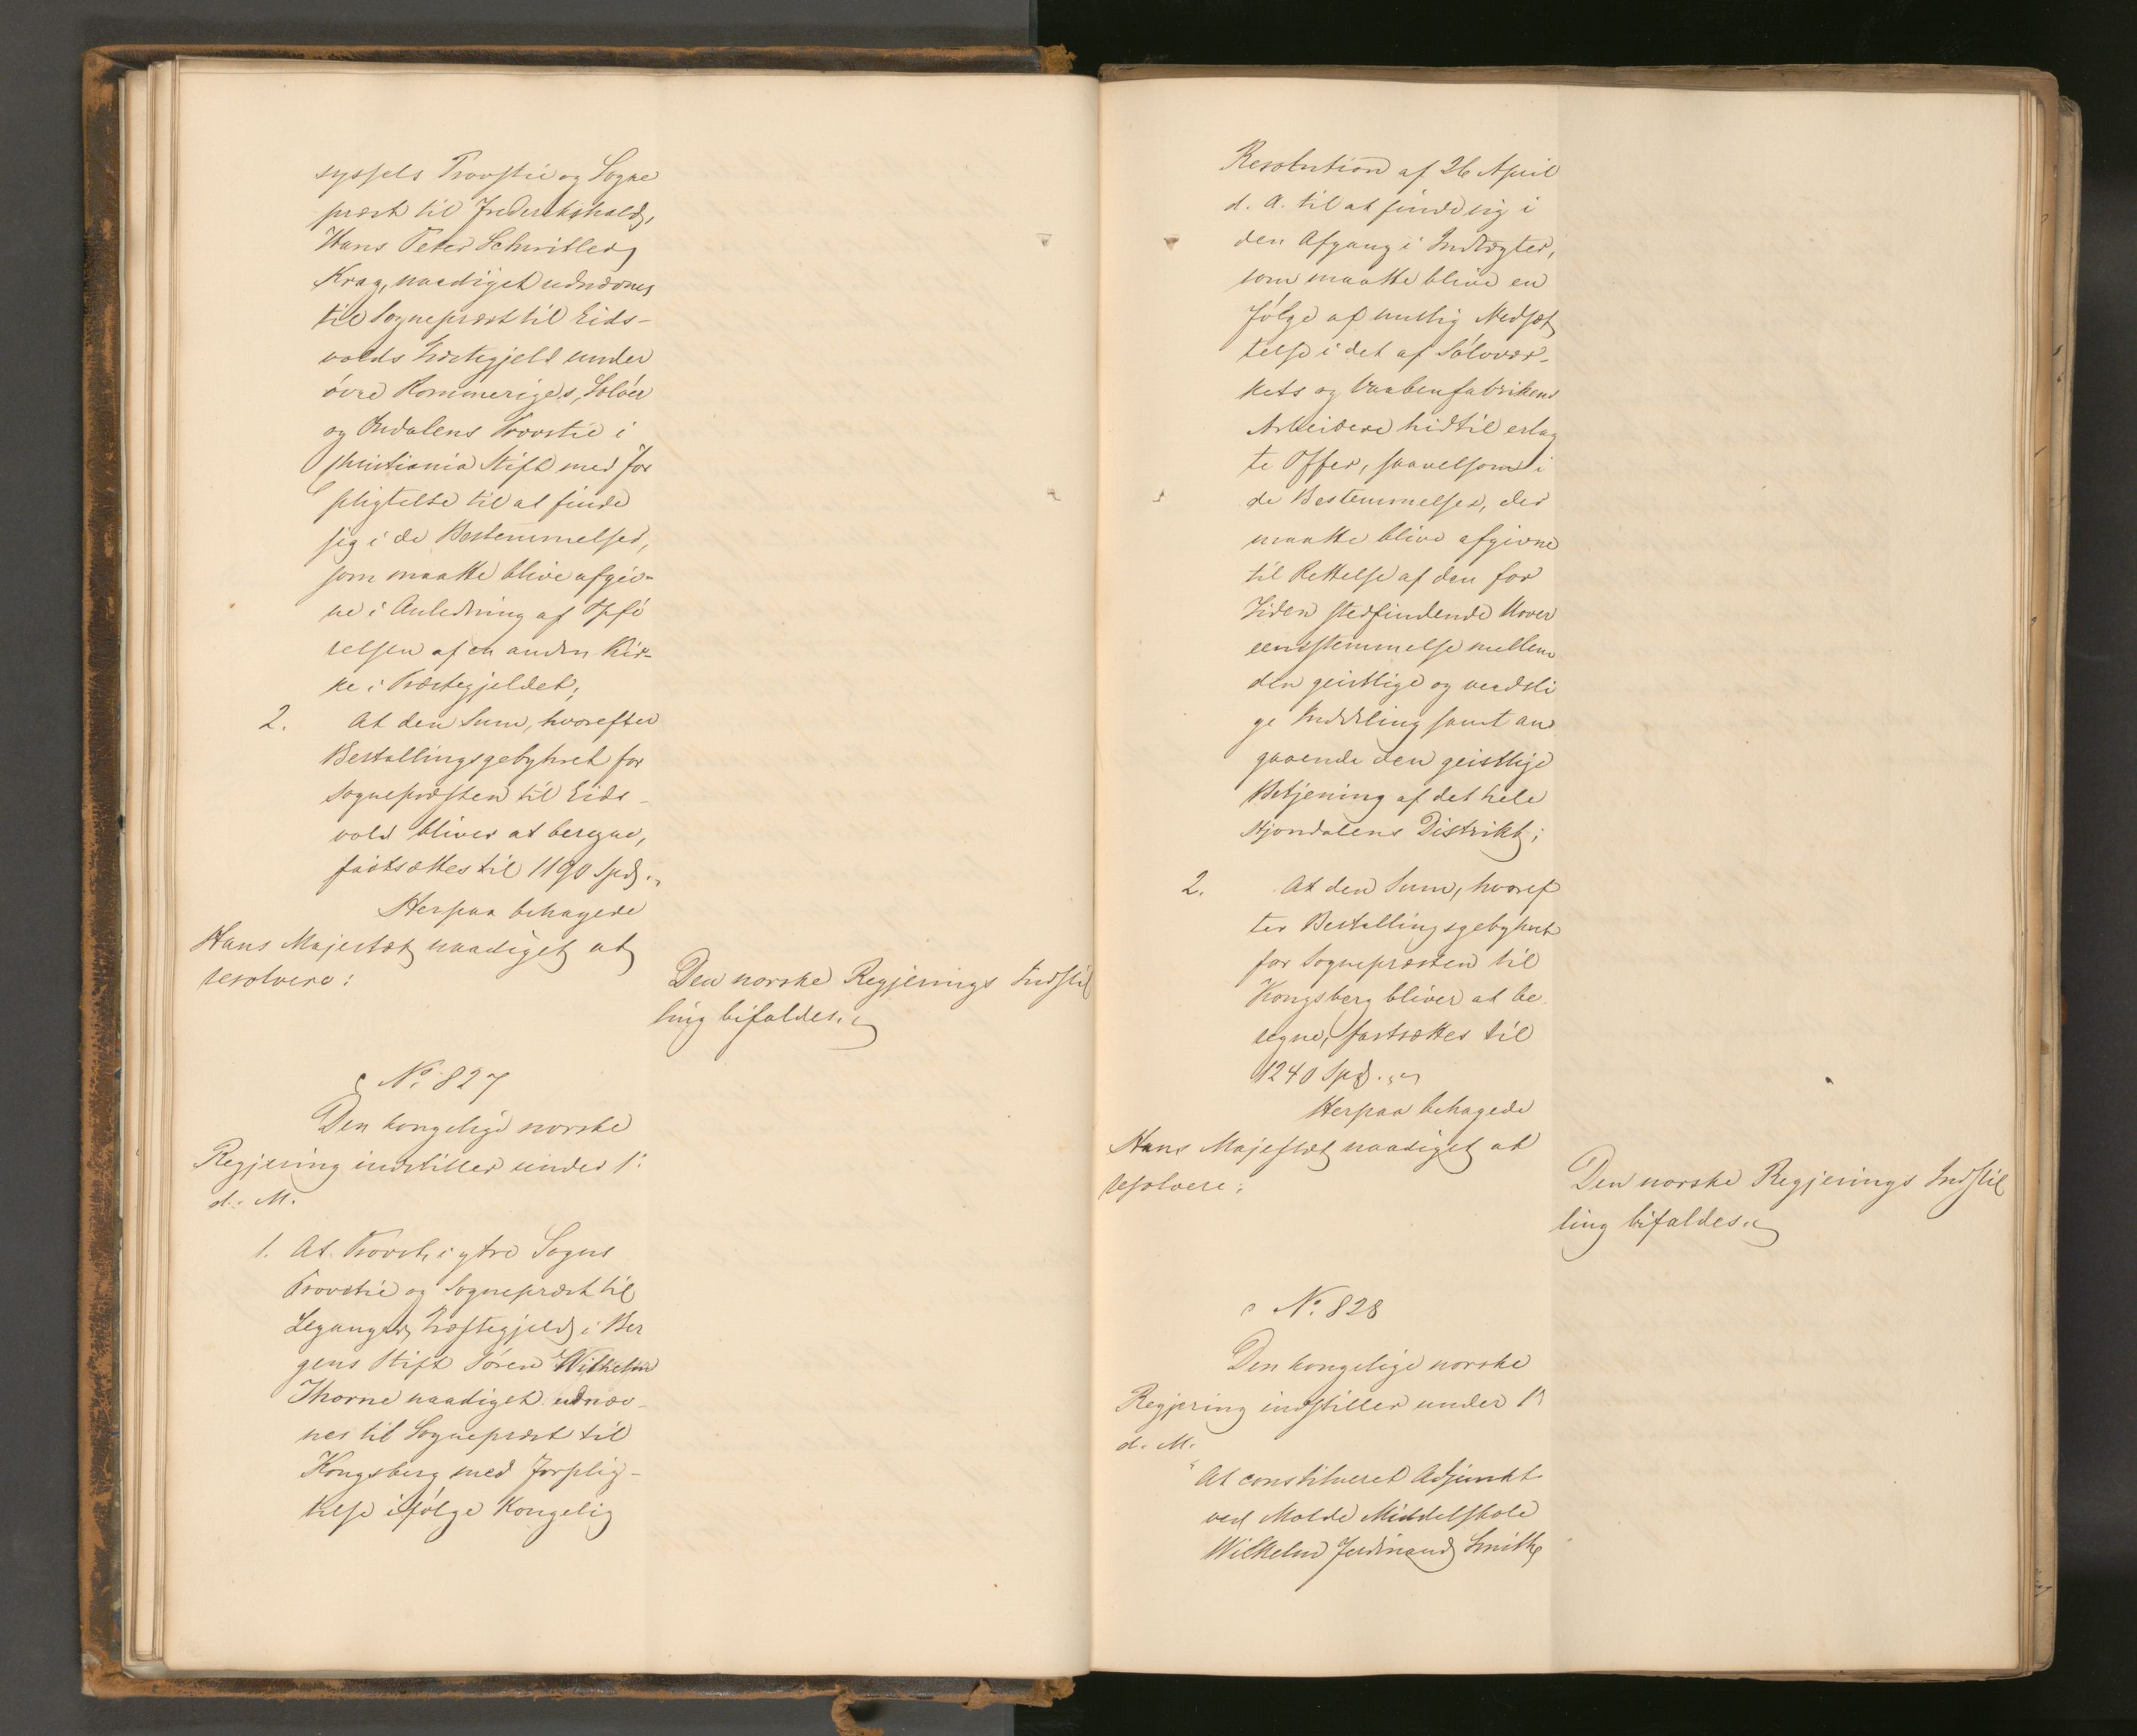 syssels Provstie og Sogne
præst til Frederikshald,
Hans Peter Schnitler
Krag, naadigst udnævnes
til Sognepræst til Eids-
volds Præstegjeld under
övre Rommeriges, Solöer
og Ørdalens Provstie i
Christiania Stift med For
pligtelse til at finde
sig i de Bestemmelser,
som maatte blive afgiv-
ne i Anledning af Opfö
relsen af en anden Kir-
ke i Præstegjeldet;
2. At den Sum, hvorefter
Bestallingsgebyhret for
Sognepræsten til Eids-
vold bliver at beregne,
fastsættes til 1190 Spd.
Herpaa behagede
Hans Majestæt naadigst at
resolvere:
Den norske Regjerings Indstil
ling bifaldes.
No. 827
Den kongelige norske
Regjering indstiller under 1ste
d. M.
1. At Provst i ytre Sogns
Provstie og Sognepræst til
Leganger Præstegjeld i Ber
gens Stift Sören Wilhelm
Thorne naadigst udnæv-
nes til Sognepræst til
Kongsberg med Forplig-
telse ifölge Kongelig
Resolution af 26 April
d. A. til at finde sig i
den Afgang i Indtægter,
som maatte blive en
Fölge af mulig Nedsæt
telse i det af Sölvvær-
kets og Vaabenfabrikens
Arbeidere hidtil erlag
te Offer, saavelsom i
de Bestemmelser, der
maatte blive afgivne
til Rettelse af den for
Tiden stedfindende Uover
eensstemmelse mellem
den geistlige og verdsli
ge Inddeling samt an
gaaende den geistlige
Betjening af det hele
Hjondalens Distrikt;
2. At den Sum, hvoref
ter Bestallingsgebyhret
for Sognepræsten til
Kongsberg bliver at be
regne, fastsættes til
1240 Spd.
Herpaa behagede
Hans Majestæt naadigst at
resolvere:
Den norske Regjerings Indstil
ling bifaldes.
No. 828
Den kongelige norske
Regjering indstiller under 1ste
d. M.
At constitueret Adjunkt
ved Molde Middelskole
Wilhelm Ferdinand Smith